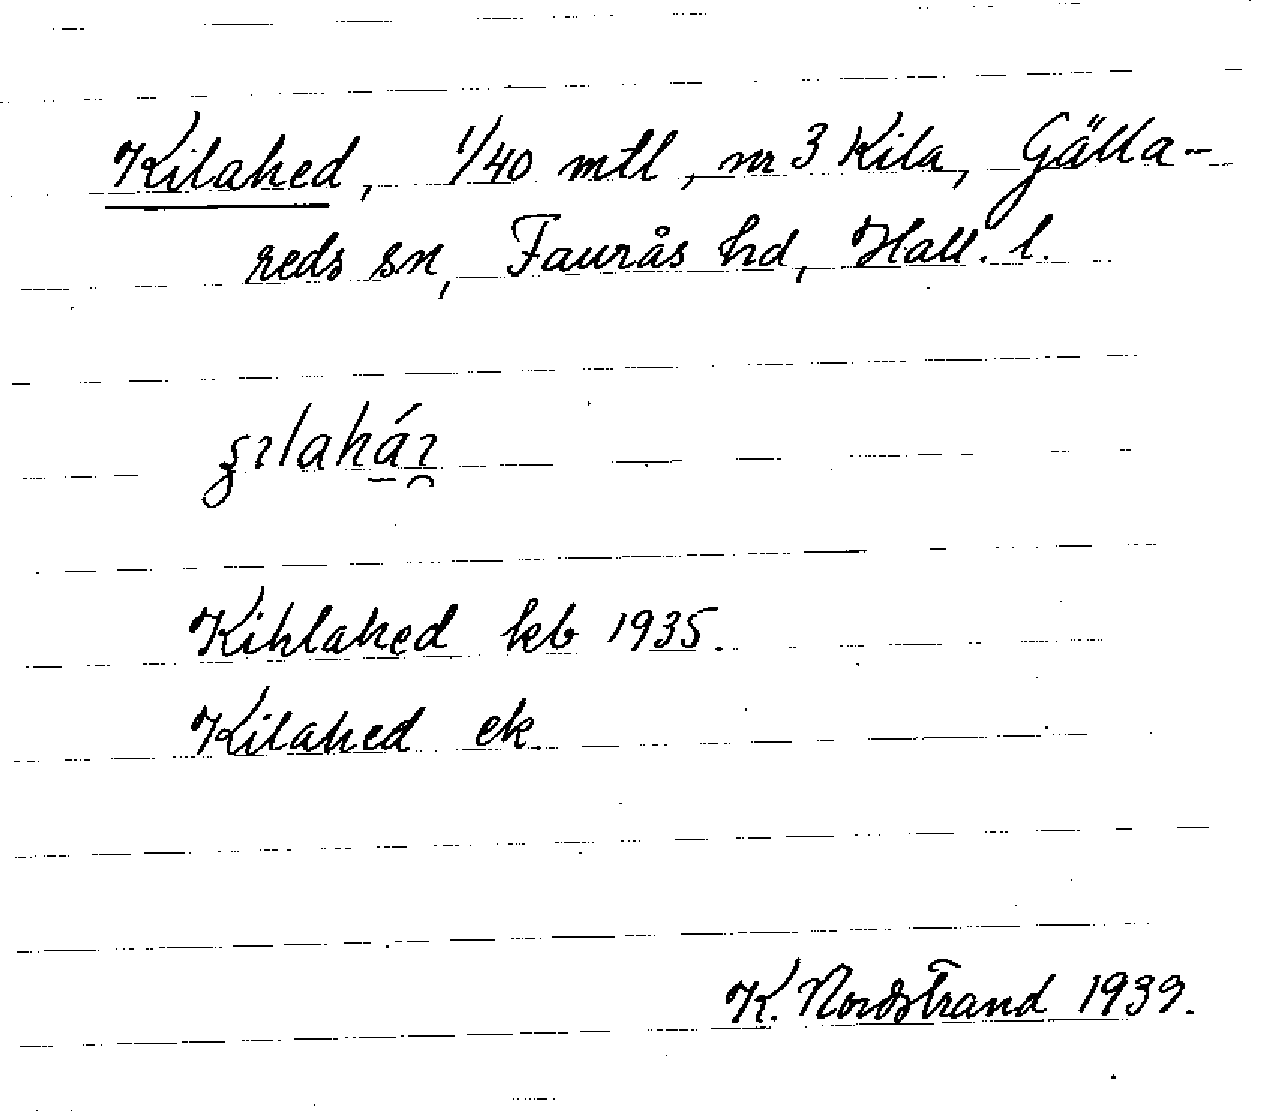 Kilahed, 1/40 mtl, nr 3 Kila, Gälla-
reds sn, Faurås hd, Hall. l.
Kihlahed kb 1935.
Kilahed ek.
K. Nordstrand 1939.